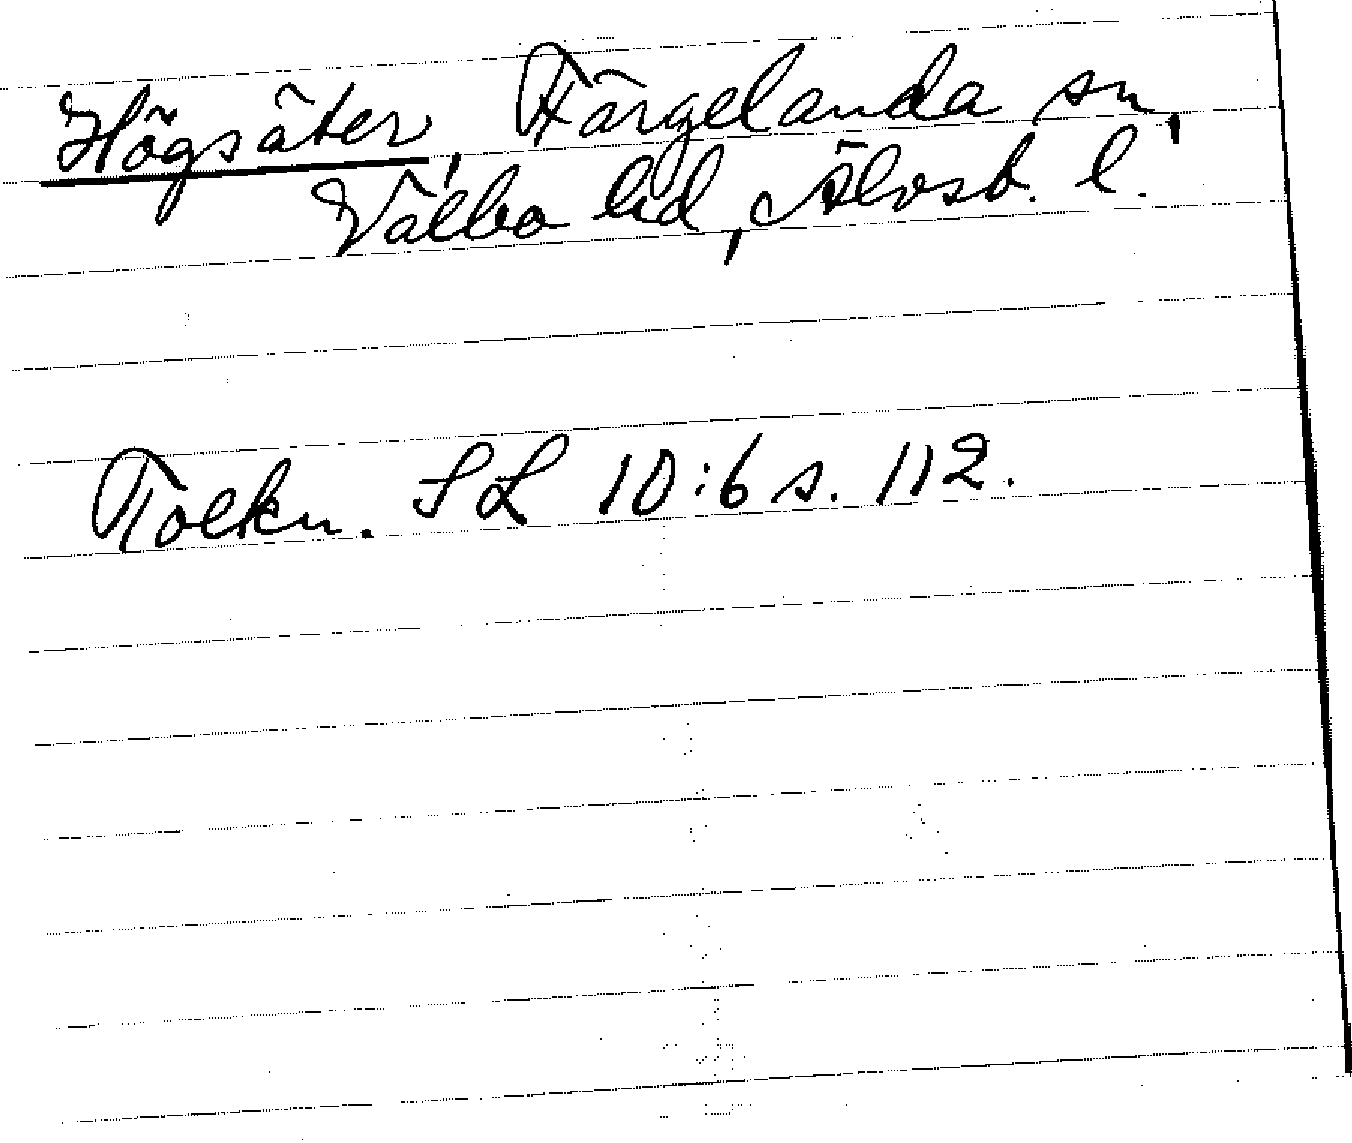 Högsäter, Färgelanda sn,
Valbo hd, Älvsb. l.
Tolkn. SL 10:6 s. 112.